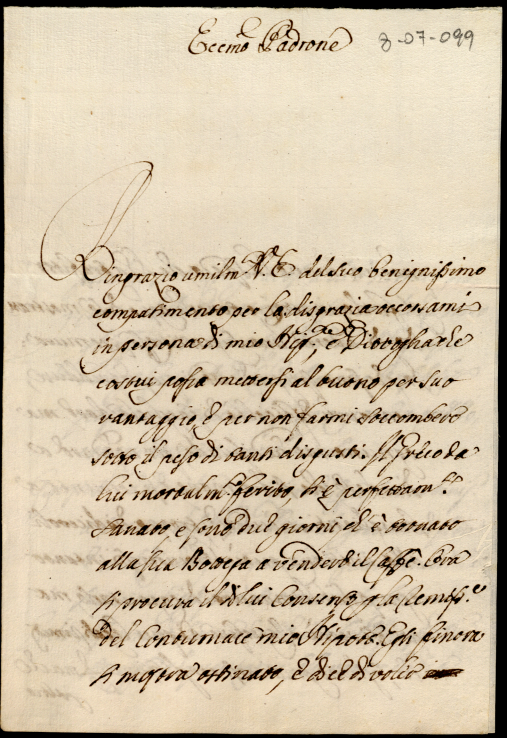 Eccmo Padrone 8-07-099
Ringrazio umilm.te V. E. del suo benignissimo
compatimento per la disgrazia occorsami
in persona di mio Nip.e, e Dio voglia che
costui possa mettersi al buono per suo
vantaggio, e per non farmi soccombere
sotto il peso di tanti disgusti. Il Greco da
lui mortalm.te ferito, si è perfettam.te
sanato, e sono due giorni ch'è tornato
alla sua Bottega a vendere il Caffè. Ora
si procura il di lui Consenso p la
del Contumace mio Nipote. Egli sinora
si mostra ostinato, e dice di voler